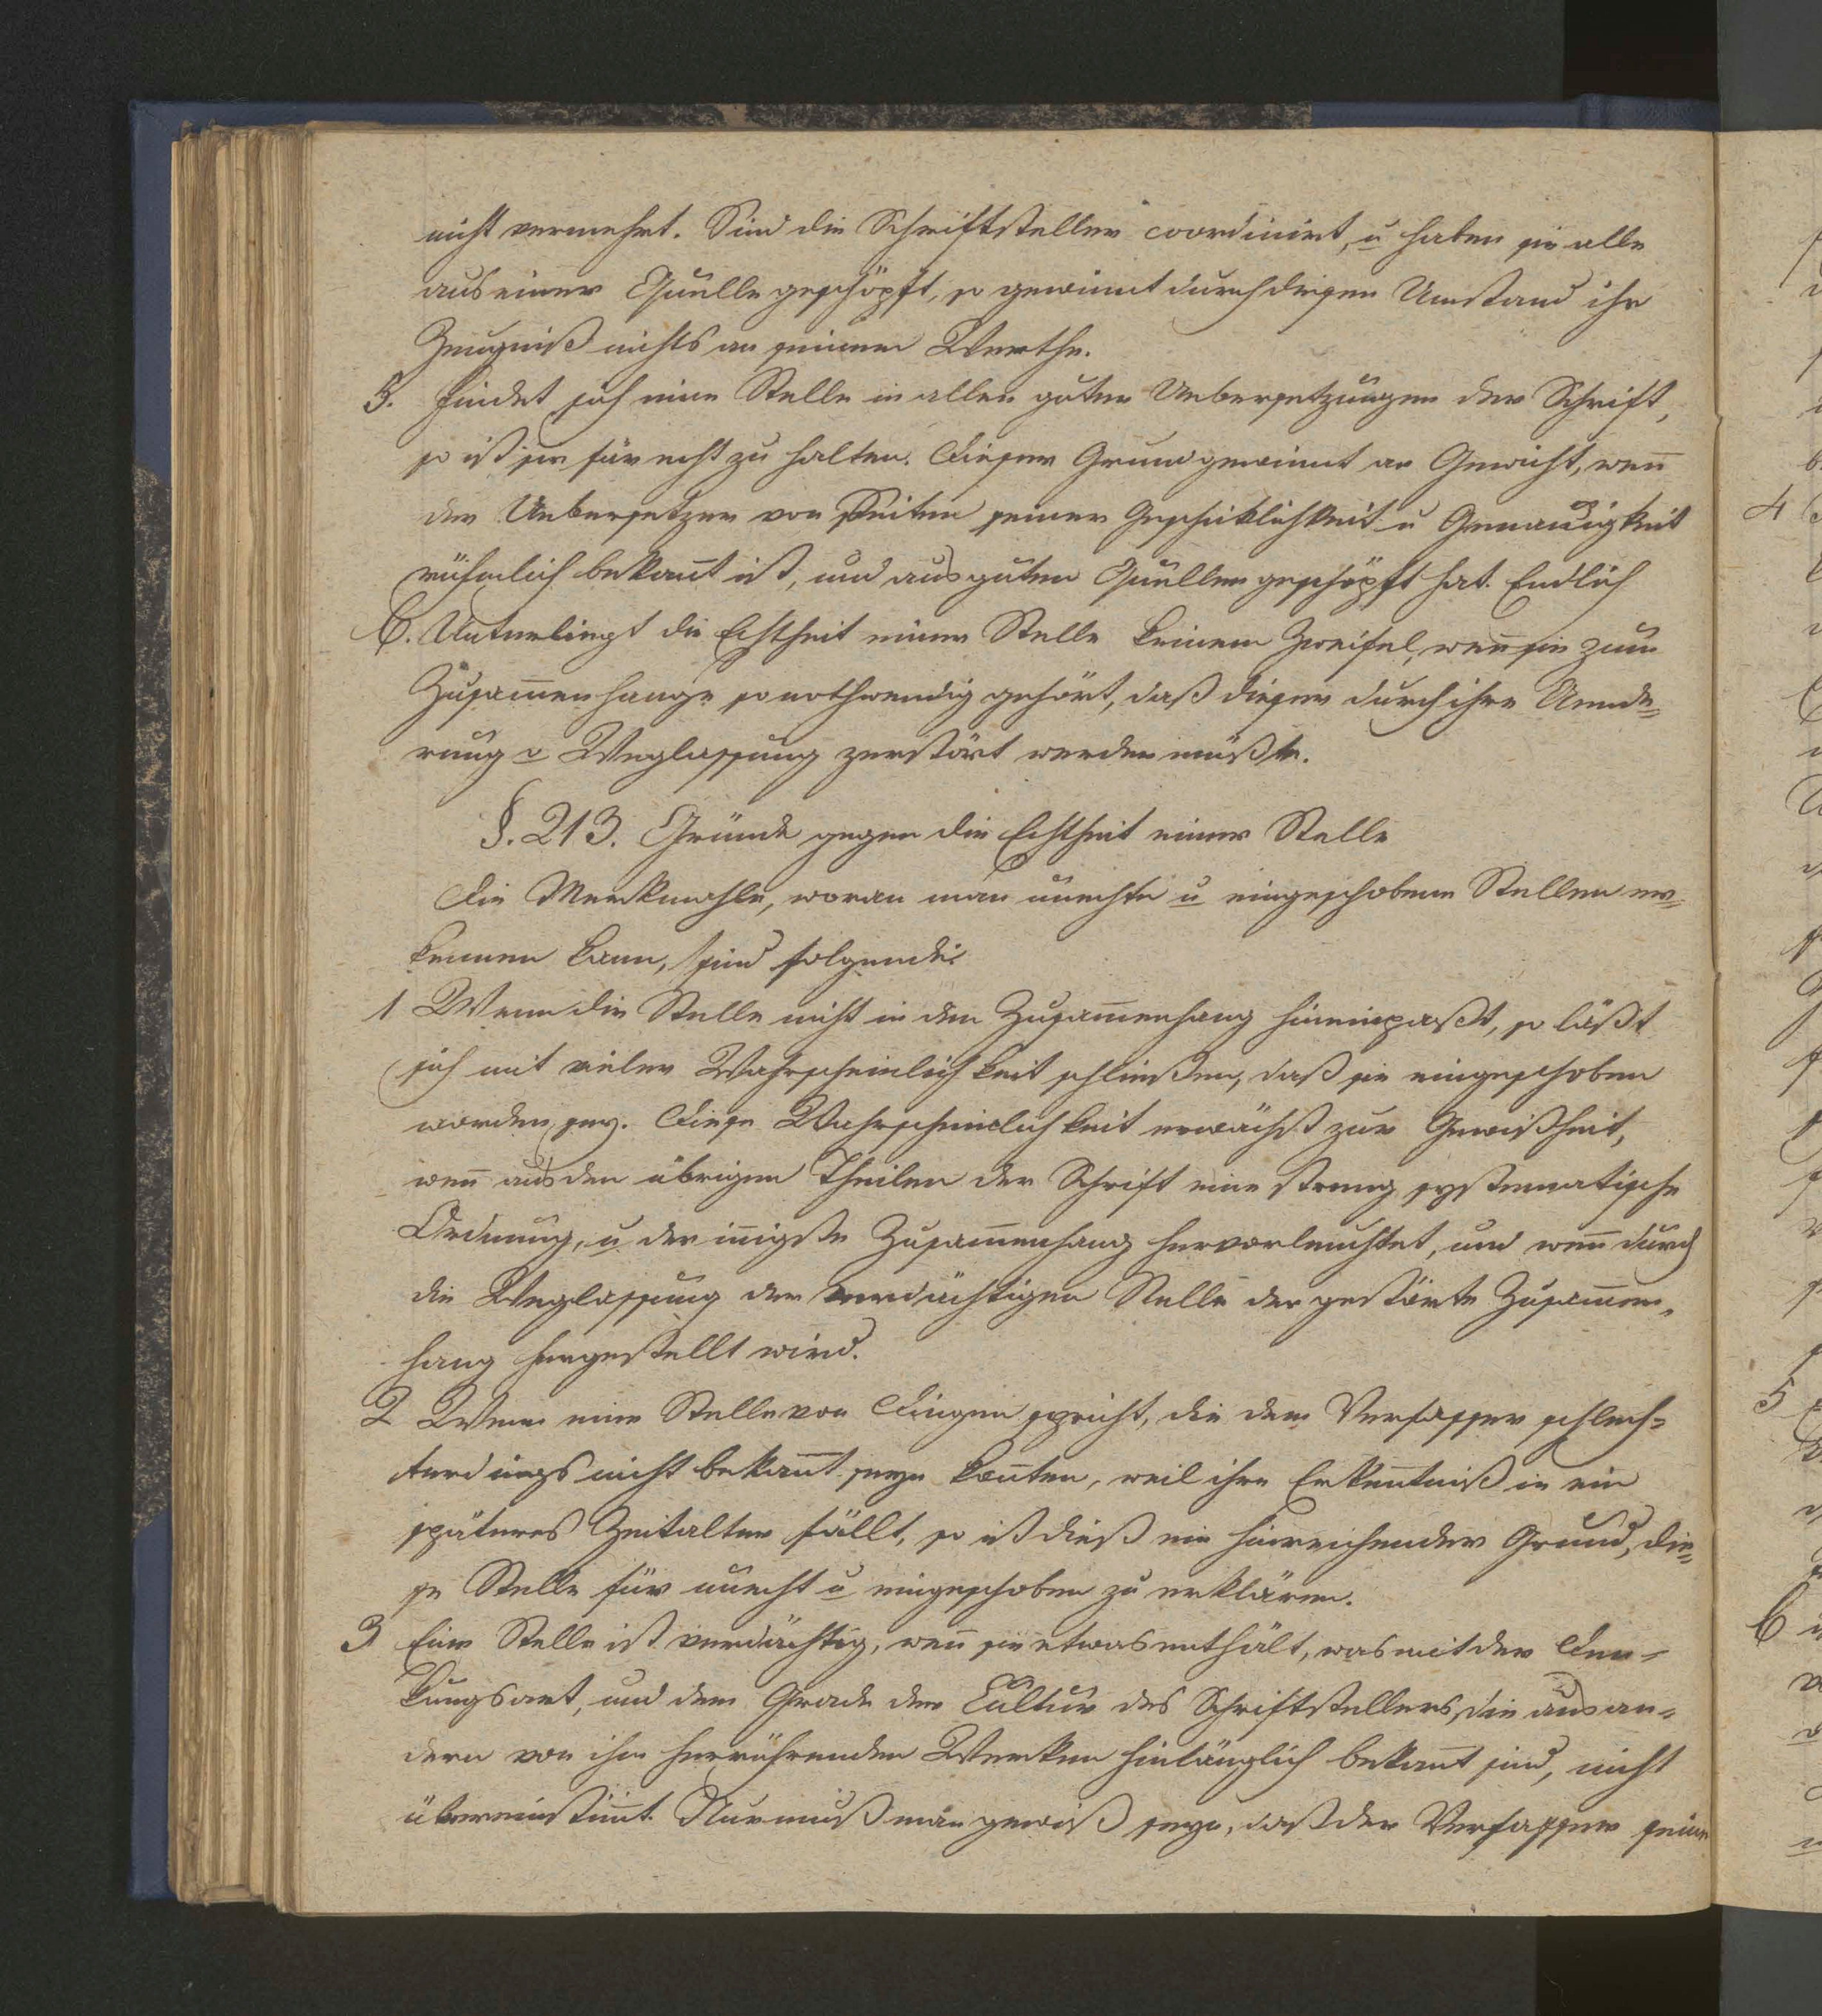 nicht vermehrt. Sind die Schriftsteller coordinirt, u haben sie alle
aus einer Quelle geschöpft, so gewinnt durch diesen Umstand ihr
Zeugniß nichts an seinem Werthe.
5. Findet sich eine Stelle in allen guten Uebersetzungen der Schrift,
so ist sie für echt zu halten. Dieser Grund gewinnt an Gewicht, weñ
der Uebersetzer von Seiten seiner Geschiklichkeit u Genauigkeit
rühmlich bekañt ist, und aus guten Quellen geschöpft hat. Endlich
6. Unterliegt die Echtheit einer Stelle keinem Zweifel, weñ sie zum
Zusam̅enhange so nothwendig gehört, daß dieser durch ihre Aende=
rung o Weglassung zerstört werden müßte.
§. 213. Gründe gegen die Echtheit einer Stelle
Die Merkmahle, woran man unechte u eingeschobene Stellen er=
kennen kann, sind folgende:
1 Wenn die Stelle nicht in den Zusam̅enhang hineinpaßt, so läßt
sich mit vieler Wahrscheinlichkeit schließen, daß sie eingeschoben
worden sey. Diese Wahrscheinlichkeit erwächst zur Gewißheit,
weñ aus den übrigen Theilen der Schrift eine streng systematische
Ordnung, u der iñigste Zusam̅enhang hervorleuchtet, und weñ durch
die Weglassung der verdächtigen Stelle der gestörte Zusam̅en=
hang hergestellt wird.
2 Wenn eine Stelle von Dingen spricht, die dem Verfasser schlech=
terdings nicht bekañt seyn koñten, weil ihre Erkeñtniß in ein
späteres Zeitalter fällt, so ist dieß ein hinreichender Grund, die=
se Stelle für unecht u eingeschoben zu erklären.
3 Eine Stelle ist verdächtig, weñ sie etwas enthält, was mit der Den=
kungsart, und dem Grade der Cultur des Schriftstellers, die aus an=
dern von ihm herrührenden Werken hinlänglich bekañt sind, nicht
übereinstim̅t. Nur muß man gewiß seyn, daß der Verfasser seine
4
5
6